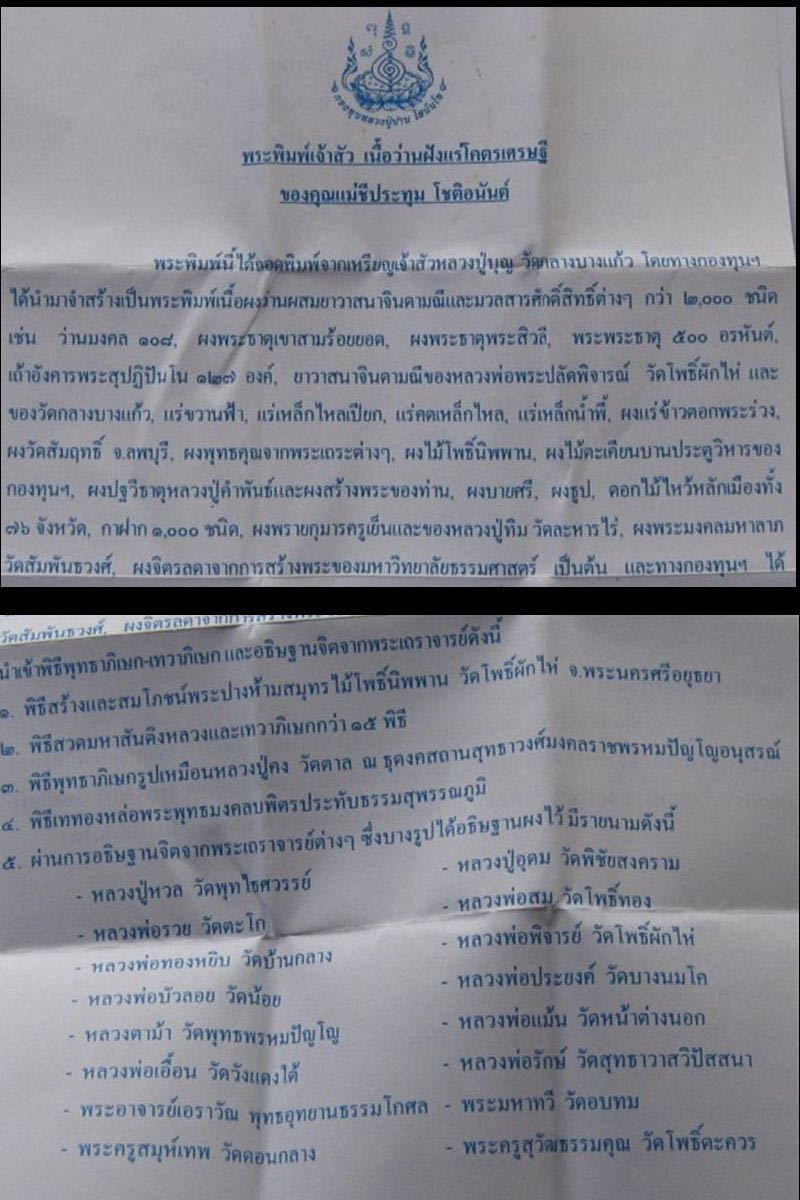 กองทุนหลวงปู่ปาน โสนันโท
พระพิมพ์เจ้าสัว เนื้อว่านฝังแร่โคตรเศรษฐี
ของคุณแม่ชีประทุม โชติอนันต์
พระพิมพ์นี้ได้ถอดพิมพ์จากเหรียญเจ้าสัวหลวงปู่บุญ วัดกลางบางแก้ว โดยทางกองทุนฯ
ได้นำมาจำสร้างเป็นพระพิมพ์เนื้อผงว่านผสมยาวาสนาจินดามณีและมวลสารศักดิ์สิทธิ์ต่างๆ กว่า ๒,๐๐๐ ชนิด
เช่น ว่านมงคล ๑๐๘, ผงพระธาตุเขาสามร้อยยอด, ผงพระธาตุพระสิวลี, พระพระธาตุ ๕๐๐ อรหันต์,
เถ้าอังคารพระสุปฏิปันโน ๑๒๗ องค์, ยาวาสนาจินดามณีของหลวงพ่อพระปลัดพิจารณ์ วัดโพธิ์ผักไห่ และ
ของวัดกลางบางแก้ว, แร่ขวานฟ้า, แร่เหล็กไหลเปียก, แร่คตเหล็กไหล, แร่เหล็กน้ำพี้, ผงแร่ข้าวตอกพระร่วง,
ผงวัดสัมฤทธิ์ จ.ลพบุรี, ผงพุทธคุณจากพระเถระต่างๆ, ผงไม้โพธิ์นิพพาน, ผงไม้ตะเคียนบานประตูวิหารของ
กองทุนฯ, ผงปฐวีธาตุหลวงปู่คำพันธ์และผงสร้างพระของท่าน, ผงบายศรี, ผงธูป, ดอกไม้ไหว้หลักเมืองทั้ง
๗๖ จังหวัด, กาฝาก ๑,๐๐๐ ชนิด, ผงพรายกุมารครูเย็นและของหลวงปู่ทิม วัดละหารไร่, ผงพระมงคลมหาลาภ
วัดสัมพันธวงศ์, ผงจิตรลดาจากการสร้างพระของมหาวิทยาลัยธรรมศาสตร์ เป็นต้น และทางกองทุนฯ ได้
วัดสัมพันธวงศ์, ผงจิตรลดาจากการสร้างพระ
นำเข้าพิธีพุทธาภิเษก-เทวาภิเษก และอธิษฐานจิตจากพระเถราจารย์ดังนี้
๑. พิธีสร้างและสมโภชน์พระปางห้ามสมุทรไม้โพธิ์นิพพาน วัดโพธิ์ผักไห่ จ.พระนครศรีอยุธยา
๒. พิธีสวดมหาสันติงหลวงและเทวาภิเษกกว่า ๑๕ พิธี
๓. พิธีพุทธาภิเษกรูปเหมือนหลวงปู่คง วัดตาล ณ ธุดงคสถานสุทธาวงศ์มงคลราชพรหมปัญโญอนุสรณ์
๔. พิธีเททองหล่อพระพุทธมงคลบพิตรประทับธรรมสุพรรณภูมิ
๕. ผ่านการอธิษฐานจิตจากพระเถราจารย์ต่างๆ ซึ่งบางรูปได้อธิษฐานผงไว้ มีรายนามดังนี้
- หลวงปู่หวล วัดพุทไธศวรรย์
- หลวงพ่อรวย วัดตะโก
- หลวงพ่อทองหยิบ วัดบ้านกลาง
- หลวงพ่อบัวลอย วัดน้อย
- หลวงตาม้า วัดพุทธพรหมปัญโญ
- หลวงพ่อเอื้อน วัดวังแดงใต้
- พระอาจารย์เอราวัณ พุทธอุทยานธรรมโกศล
- พระครูสมุห์เทพ วัดดอนกลาง
- หลวงปู่อุดม วัดพิชัยสงคราม
- หลวงพ่อสม วัดโพธิ์ทอง
- หลวงพ่อพิจารย์ วัดโพธิ์ผักไห่
- หลวงพ่อประยงค์ วัดบางนมโค
- หลวงพ่อแม้น วัดหน้าต่างนอก
- หลวงพ่อรักษ์ วัดสุทธาวาสวิปัสสนา
- พระมหาทวี วัดอบทม
- พระครูสุวัฒธรรมคุณ วัดโพธิ์ตะควร